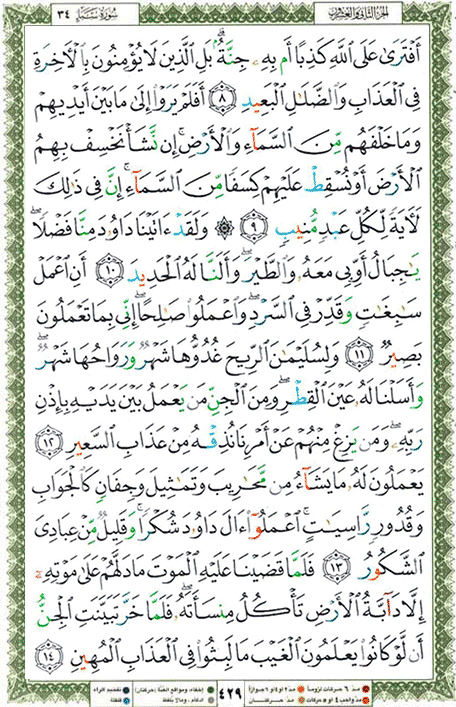 الجزء الثاني والعشرون
سورة سبإ ٣٤
أَفْتَرَىٰ عَلَى ٱللَّهِ كَذِبًا أَم بِهِۦ جِنَّةُۢ ۗ بَلِ ٱلَّذِينَ لَا يُؤْمِنُونَ بِٱلْـَٔاخِرَةِ
فِى ٱلْعَذَابِ وَٱلضَّلَٰلِ ٱلْبَعِيدِ ٨ أَفَلَمْ يَرَوْا۟ إِلَىٰ مَا بَيْنَ أَيْدِيهِمْ
وَمَا خَلْفَهُم مِّنَ ٱلسَّمَآءِ وَٱلْأَرْضِ ۚ إِن نَّشَأْ نَخْسِفْ بِهِمُ
ٱلْأَرْضَ أَوْ نُسْقِطْ عَلَيْهِمْ كِسَفًا مِّنَ ٱلسَّمَآءِ ۚ إِنَّ فِى ذَٰلِكَ
لَـَٔايَةً لِّكُلِّ عَبْدٍ مُّنِيبٍ ٩ ۞ وَلَقَدْ ءَاتَيْنَا دَاوُۥدَ مِنَّا فَضْلًا ۖ
يَٰجِبَالُ أَوِّبِى مَعَهُۥ وَٱلطَّيْرَ ۖ وَأَلَنَّا لَهُ ٱلْحَدِيدَ ١٠ أَنِ ٱعْمَلْ
سَٰبِغَٰتٍ وَقَدِّرْ فِى ٱلسَّرْدِ ۖ وَٱعْمَلُوا۟ صَٰلِحًا ۖ إِنِّى بِمَا تَعْمَلُونَ
بَصِيرٌ ١١ وَلِسُلَيْمَٰنَ ٱلرِّيحَ غُدُوُّهَا شَهْرٌ وَرَوَاحُهَا شَهْرٌ ۖ
وَأَسَلْنَا لَهُۥ عَيْنَ ٱلْقِطْرِ ۖ وَمِنَ ٱلْجِنِّ مَن يَعْمَلُ بَيْنَ يَدَيْهِ بِإِذْنِ
رَبِّهِۦ ۖ وَمَن يَزِغْ مِنْهُمْ عَنْ أَمْرِنَا نُذِقْهُ مِنْ عَذَابِ ٱلسَّعِيرِ ١٢
يَعْمَلُونَ لَهُۥ مَا يَشَآءُ مِن مَّحَٰرِيبَ وَتَمَٰثِيلَ وَجِفَانٍ كَٱلْجَوَابِ
وَقُدُورٍ رَّاسِيَٰتٍ ۚ ٱعْمَلُوٓا۟ ءَالَ دَاوُۥدَ شُكْرًا ۚ وَقَلِيلٌ مِّنْ عِبَادِىَ
ٱلشَّكُورُ ١٣ فَلَمَّا قَضَيْنَا عَلَيْهِ ٱلْمَوْتَ مَا دَلَّهُمْ عَلَىٰ مَوْتِهِۦٓ
إِلَّا دَآبَّةُ ٱلْأَرْضِ تَأْكُلُ مِنسَأَتَهُۥ ۖ فَلَمَّا خَرَّ تَبَيَّنَتِ ٱلْجِنُّ
أَن لَّوْ كَانُوا۟ يَعْلَمُونَ ٱلْغَيْبَ مَا لَبِثُوا۟ فِى ٱلْعَذَابِ ٱلْمُهِينِ ١٤
مدّ ٦ حركات لزوماً
مدّ ٢ أو ٤ أو ٦ جوازاً
إخفاء، ومواقع الغنّة (حركتان)
تفخيم الراء
مدّ واجب ٤ أو ٥ حركات
مدّ حركتان
إدغام، وما لا يلفظ
قلقلة
٤٢٩